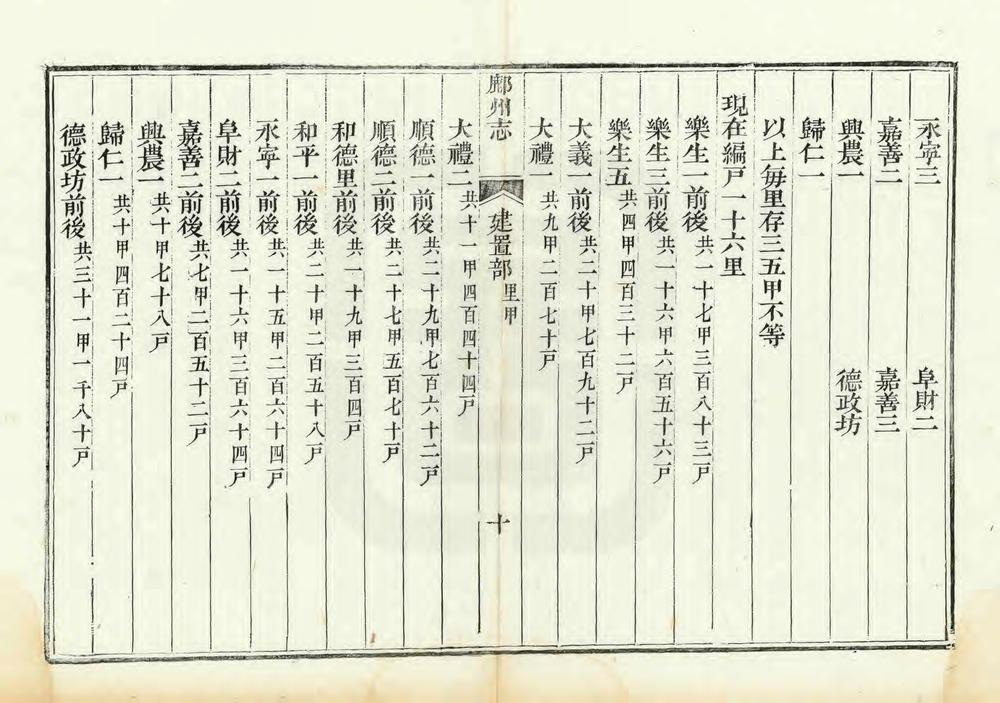 永寧三 阜財二
嘉善二 嘉善三
興農一 德政坊
歸仁一
以上每里存三五甲不等
現在編戸一十六里
樂生一前後共一十七甲三百八十三戸
樂生三前後共一十六甲六百五十六戸
樂生五共四甲四百三十二戸
大義一前後共二十甲七百九十二戸
大禮一共九甲二百七十戸
鄜州志 建置部里甲 十
大禮二共十一甲四百四十四戸
順德一前後共二十九甲七百六十二戸
順德二前後共二十七甲五百七十戸
和德里前後共一十九甲三百四戸
和平一前後共二十甲二百五十八戸
永寧一前後共一十五甲二百六十四戸
阜財二前後共一十六甲三百六十四戸
嘉善二前後共七甲二百五十二戸
興農一共十甲七十八戸
歸仁一共十甲四百二十四戸
德政坊前後共三十一甲一千八十戸